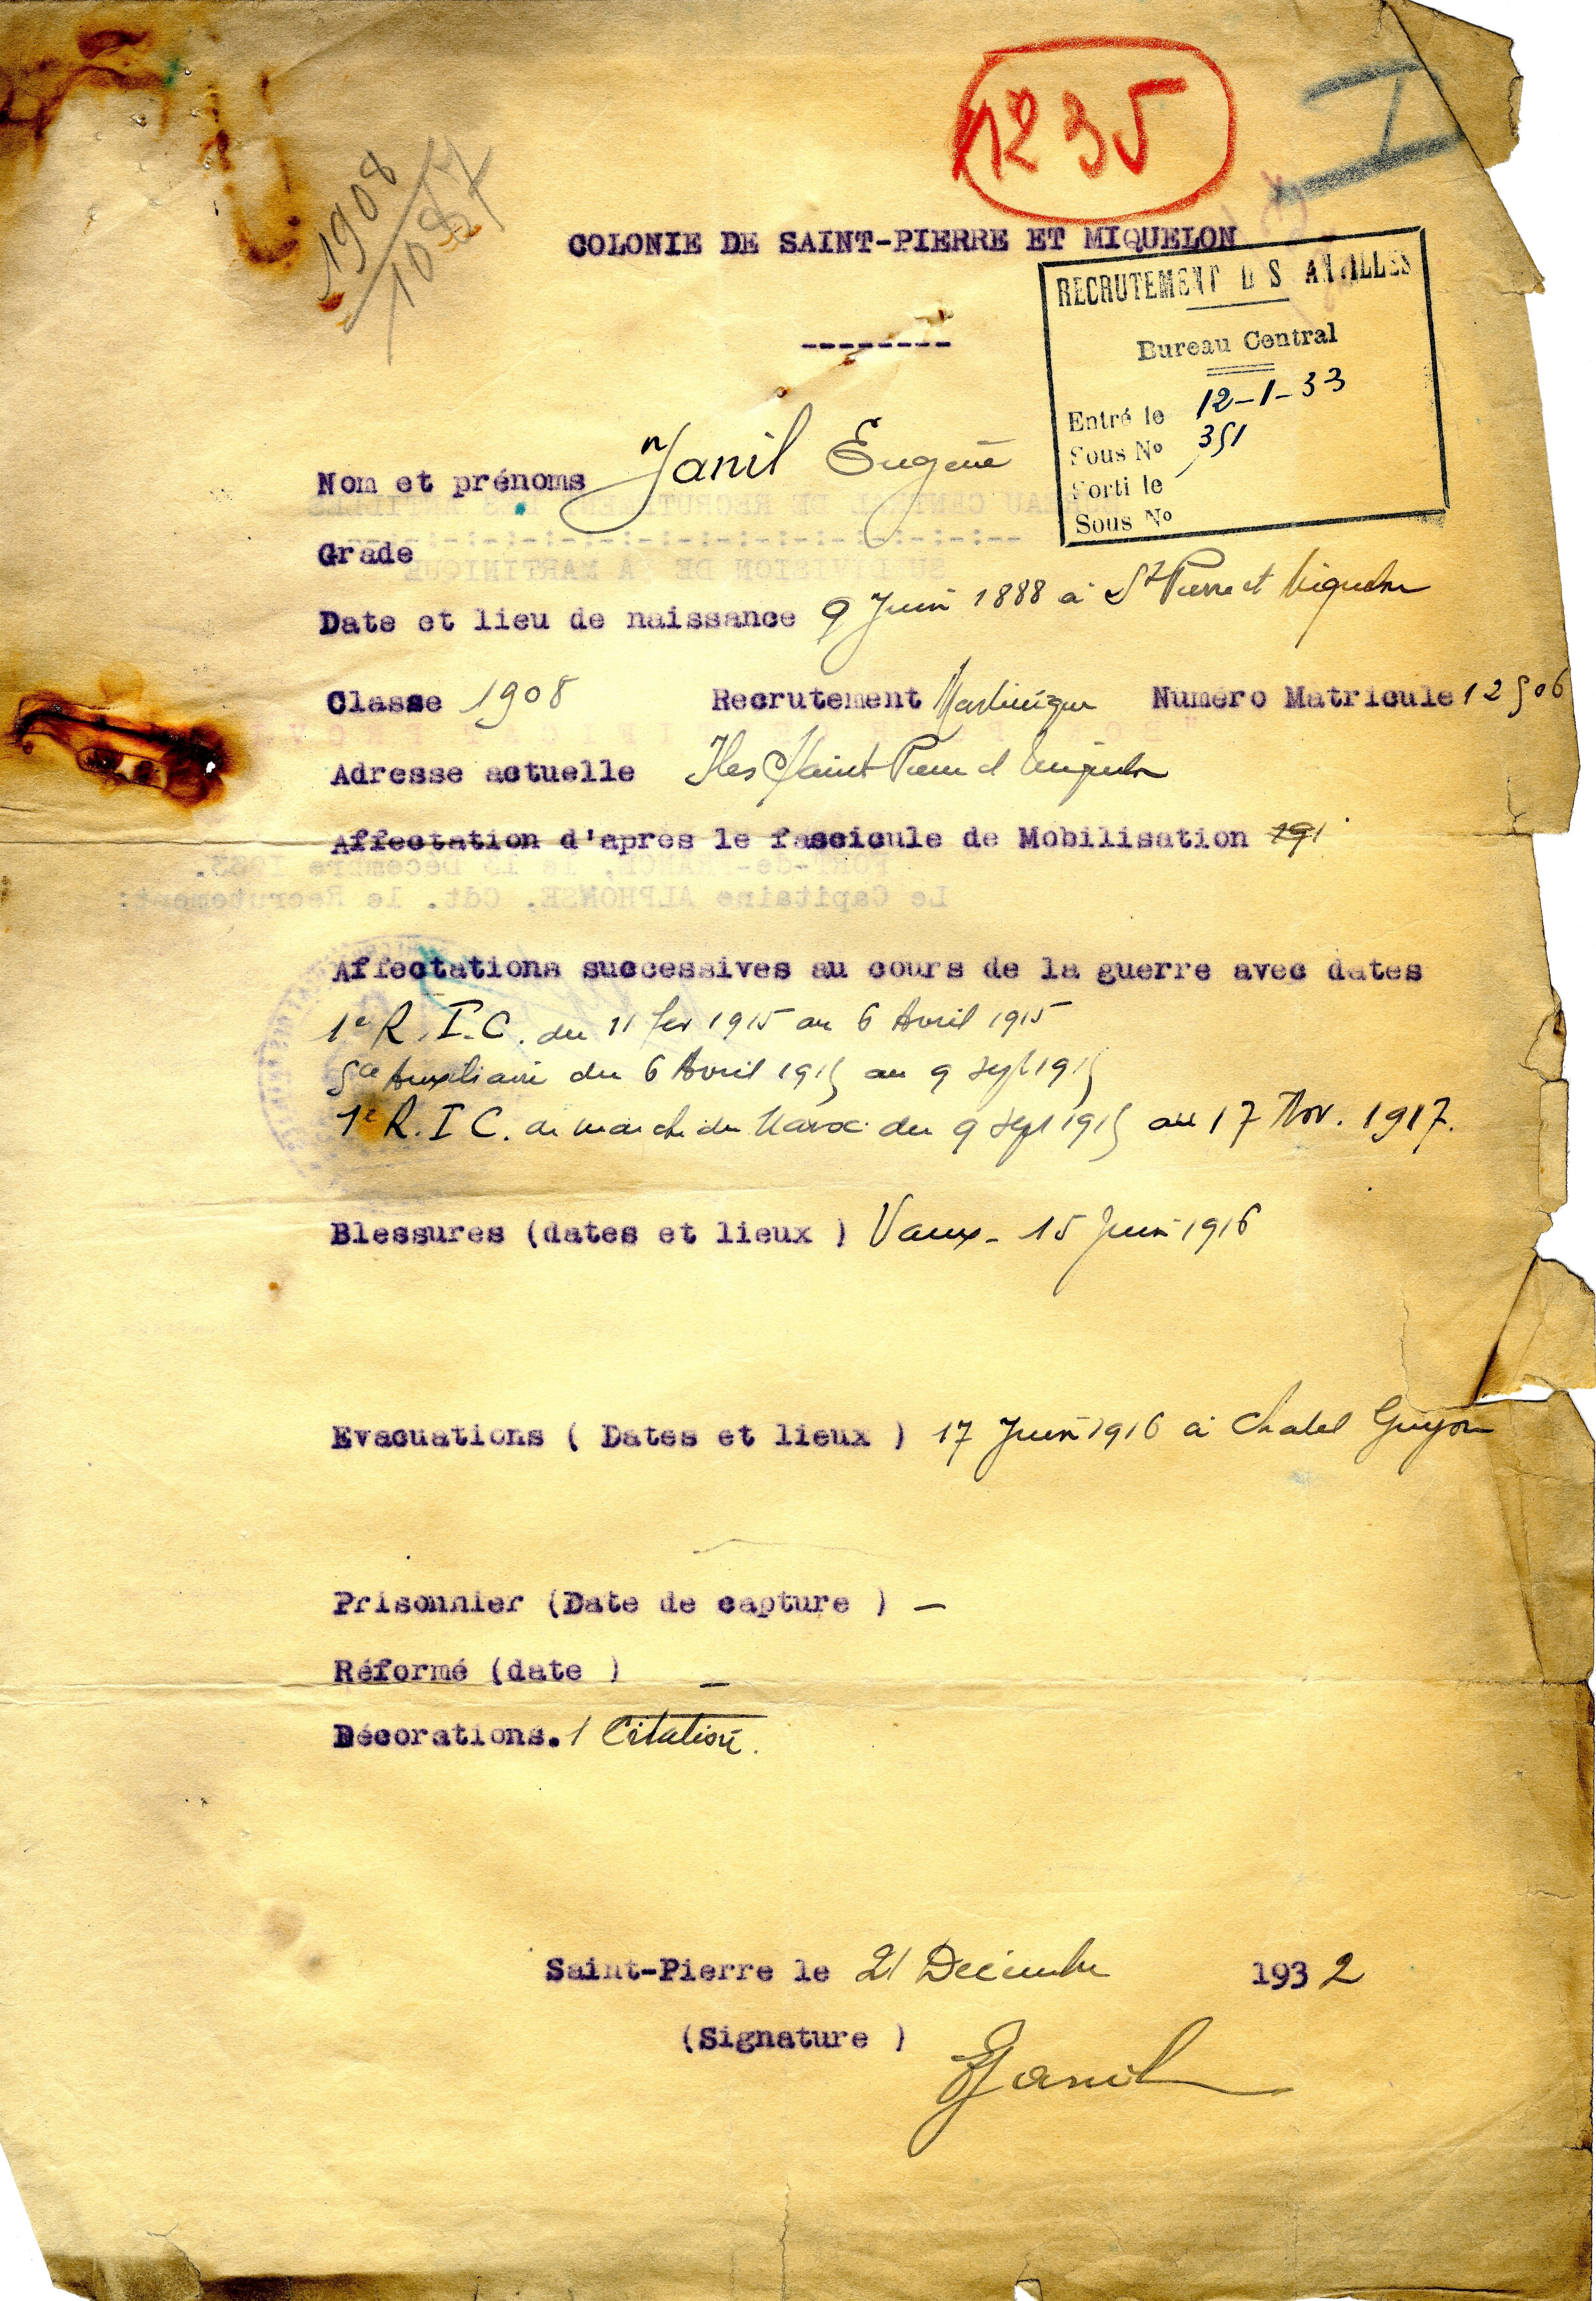 1235
I
1908
1087
COLONIE DE SAINT-PIERRE ET MIQUELON
--------
RECRUTEMENT D S ANTILLES
Bureau Central
Entré le 12-1-33
Sous No 351
Sorti le
Sous No
Nom et prénoms Janil Eugène
Grade
Date et lieu de naissance 9 Juin 1888 à St Pierre et Miquelon
Classe 1908 Recrutement Martinique Numéro Matricule 12506
Adresse actuelle Iles Saint Pierre et Miquelon
Affectation d'après le fascicule de Mobilisation 191
Affectations successives au cours de la guerre avec dates
1e R.I.C. du 11 fev 1915 au 6 Avril 1915
Sce Auxiliaire du 6 Avril 1915 au 9 sept 1915
1e R.I.C. de marche du Maroc du 9 sept 1915 au 17 Nov. 1917.
Blessures (dates et lieux ) Vaux - 15 Juin 1916
Evacuations ( Dates et lieux ) 17 Juin 1916 à Chatel Guyon
Prisonnier (Date de capture ) -
Réformé (date ) -
Décorations. 1 Citation.
Saint-Pierre le 21 Décembre 1932
(Signature )
EJanil